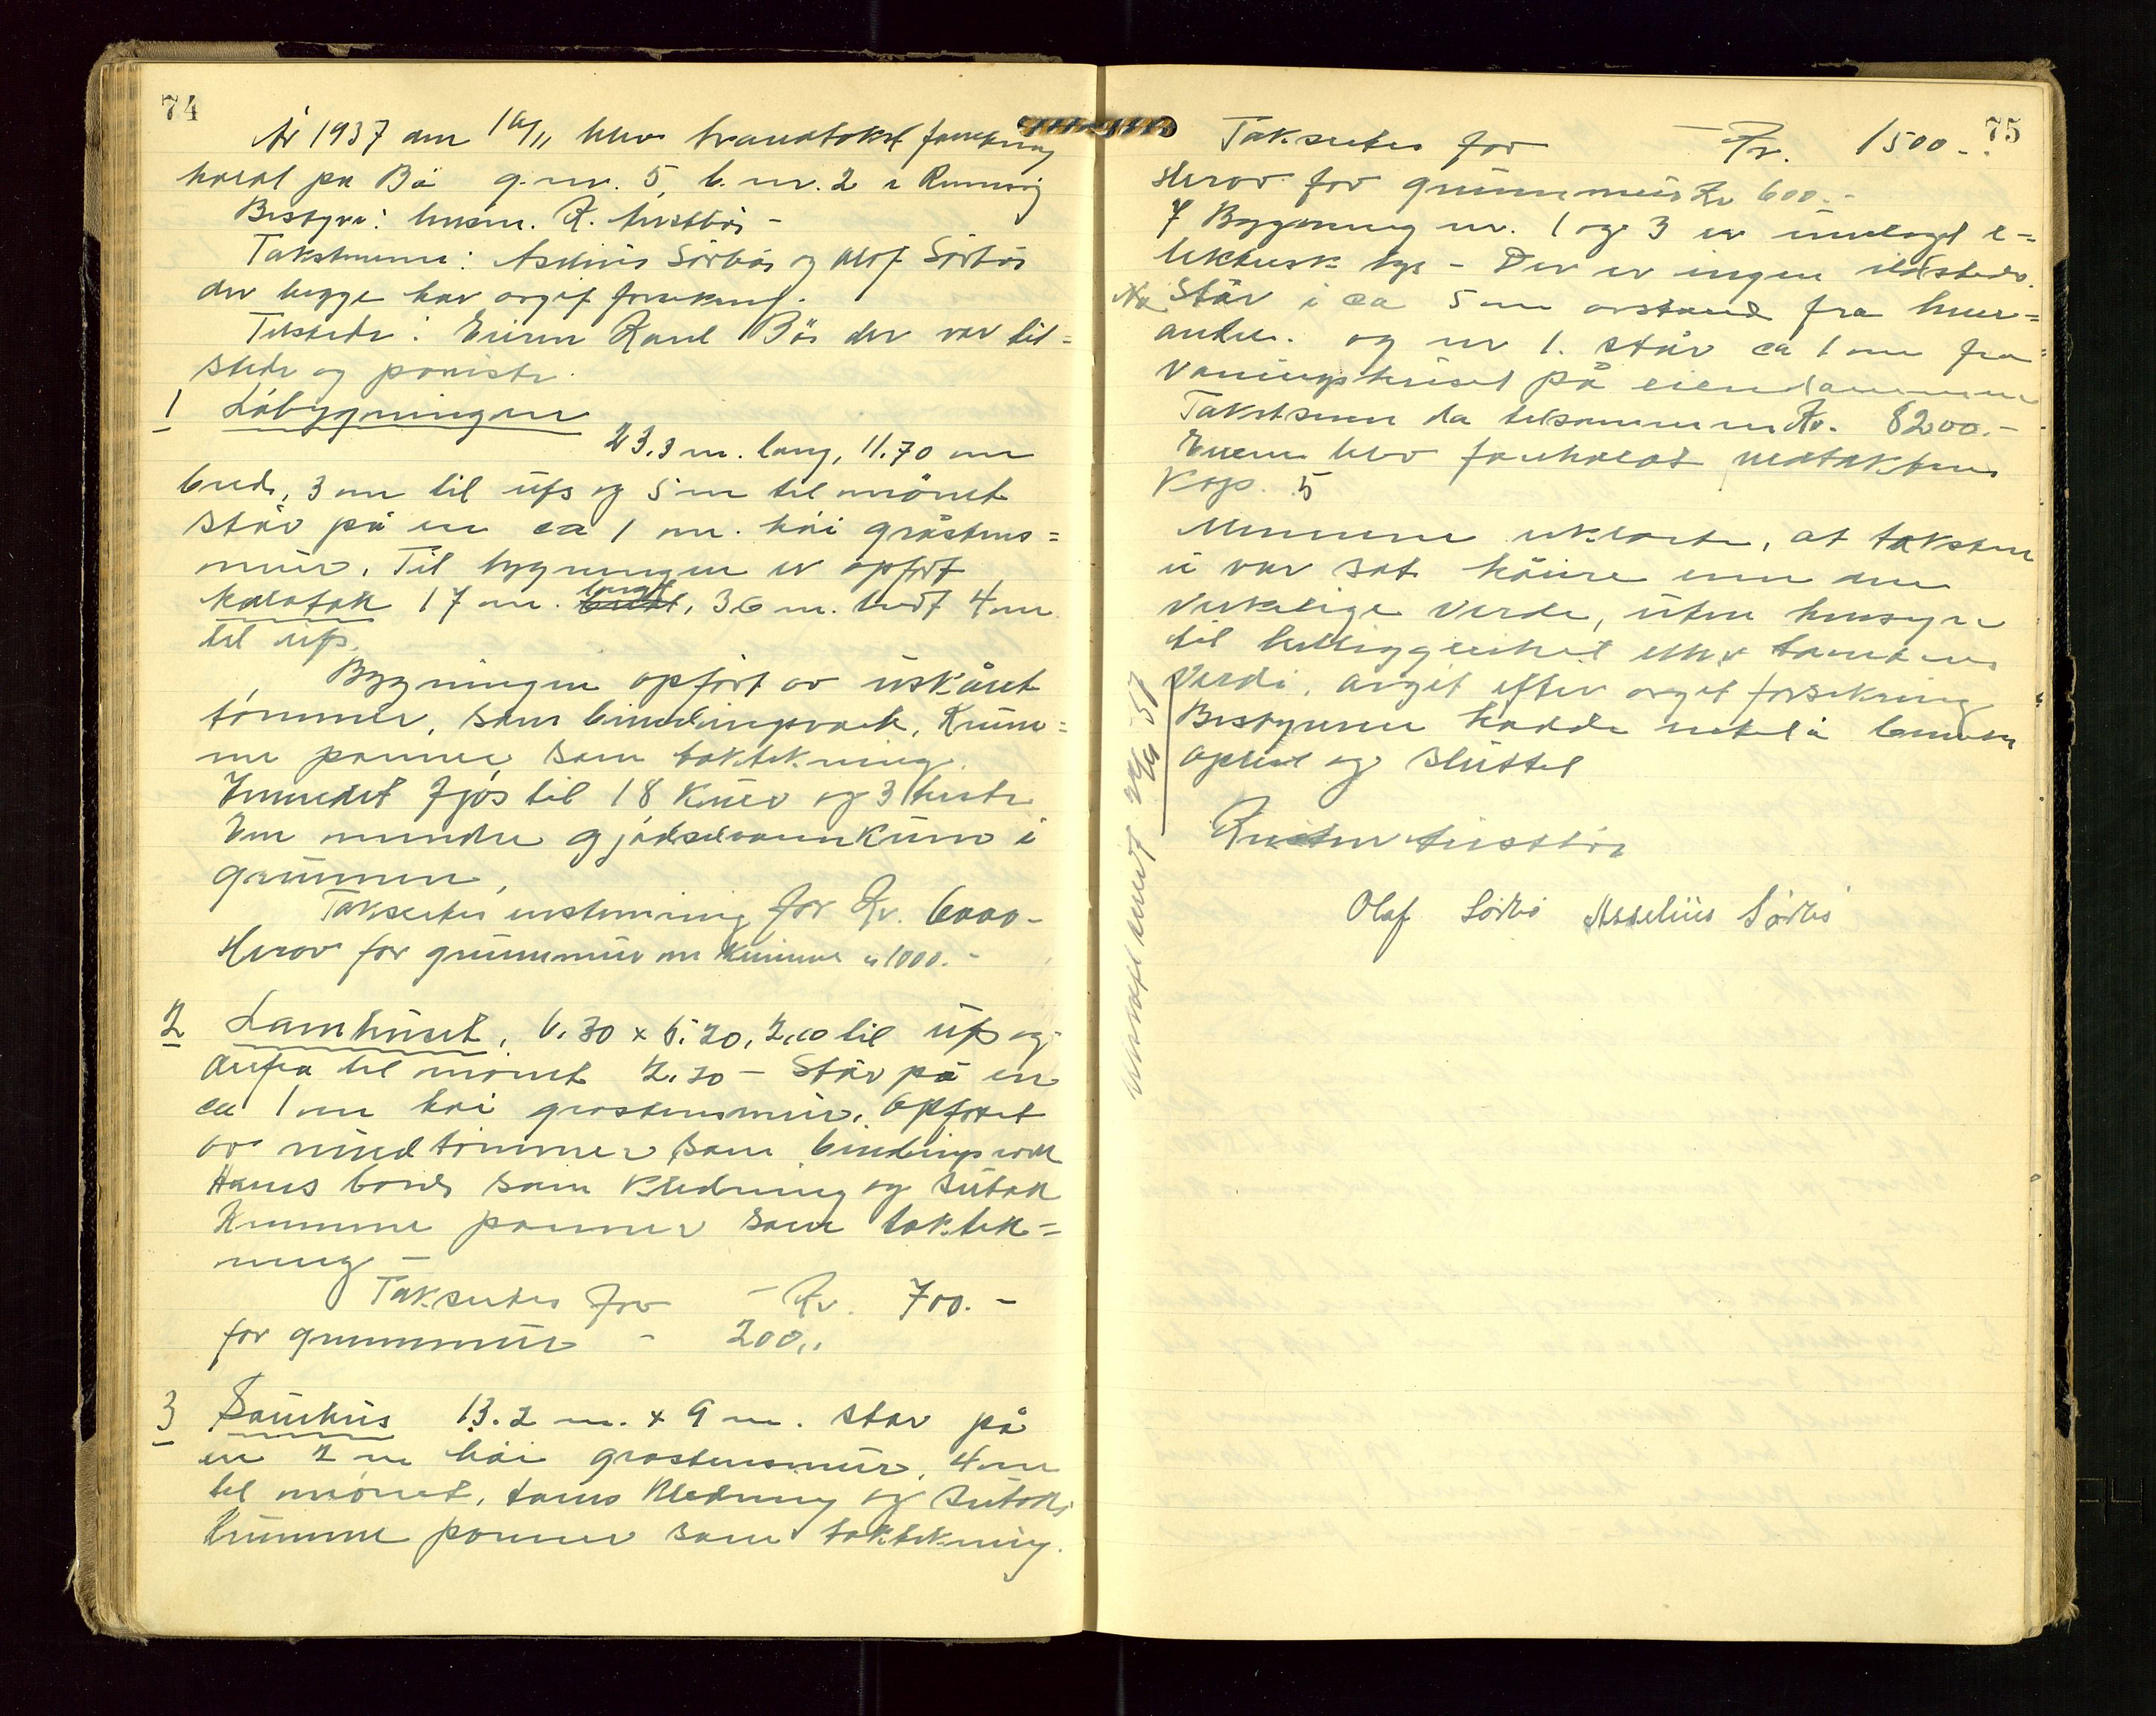 74
År 1937 den 16/11 blev brandtakst forretning
holdt på Bø g.nr. 5, b.nr. 2 i Rennesøy
Bestyrer: lensm. K.
Takstmenn: Asselius Sørbø og Olof Sørbø
der begge har avgit forsikring.
Tilstede: Eieren Karl Bø der var til=
stede og påviste
1 Løbygningen
23.3 m. lang, 11.70 m
bred, 3 m til ufs og 5 m til mønet
står på en ca 1 m. høi gråstens=
mur. Til bygningen er opført
halvtak 17 m. langt, 3.6 m. bredt 4 m
til ufs.
Bygningen opført av uskåret
tømmer, som bindingsverk, Krum=
me panner som taktekning.
Innredet Fjøs til 18 Kuer og 3 hester
En mindre gjødselvannkum i
grunnen,
Takseertes enstemmig for Kr. 6000-
Herav for grunnmur m kummen " 1000.-
2 Lamhuset, 6.30 x 5.20, 2.00 til ufs og
derfra til mønet 2.20 - Står på en
ca 1 m høi gråstensmur. Opført
av rundtømmer som bindingsverk
Høvls bord som kledning og sutak
Krumme panner som taktek=
ning -
Takseertes for - Kr. 700.-
for grunnmur - 200,,
3 Sauehus 13.2 m. x 9 m. står på
en 2 m høi gråstensmur, 4 m
til mønet, bords kledning og sutak,
Krumme panner som taktekning.
75
Takseertes for - Kr. 1500-.
Herav for grunnmur Kr 600.-
I Bygning nr. 1 og 3 er innlagt e=
lektrisk lys - Der er ingen ildsteder.
No Står i ca 5 m avstand fra hver=
andre. og nr 1. står ca 1 m fra
våningshuset på eiendommen
Takstsum da tilsammen Kr. 8200.-
Eieren blev foreholdt vedtektenes
Kap. 5
Mennene erklærte, at taksten
ei var sat høiere enn den
virkelige verdi, uten hensyn
til beliggenhet eller tomtens
verdi, avgit efter avgit forsikring
Bestyreren hadde intet å bemerke
Oplest og sluttet
Olaf Sørbø Asselius Sørbø